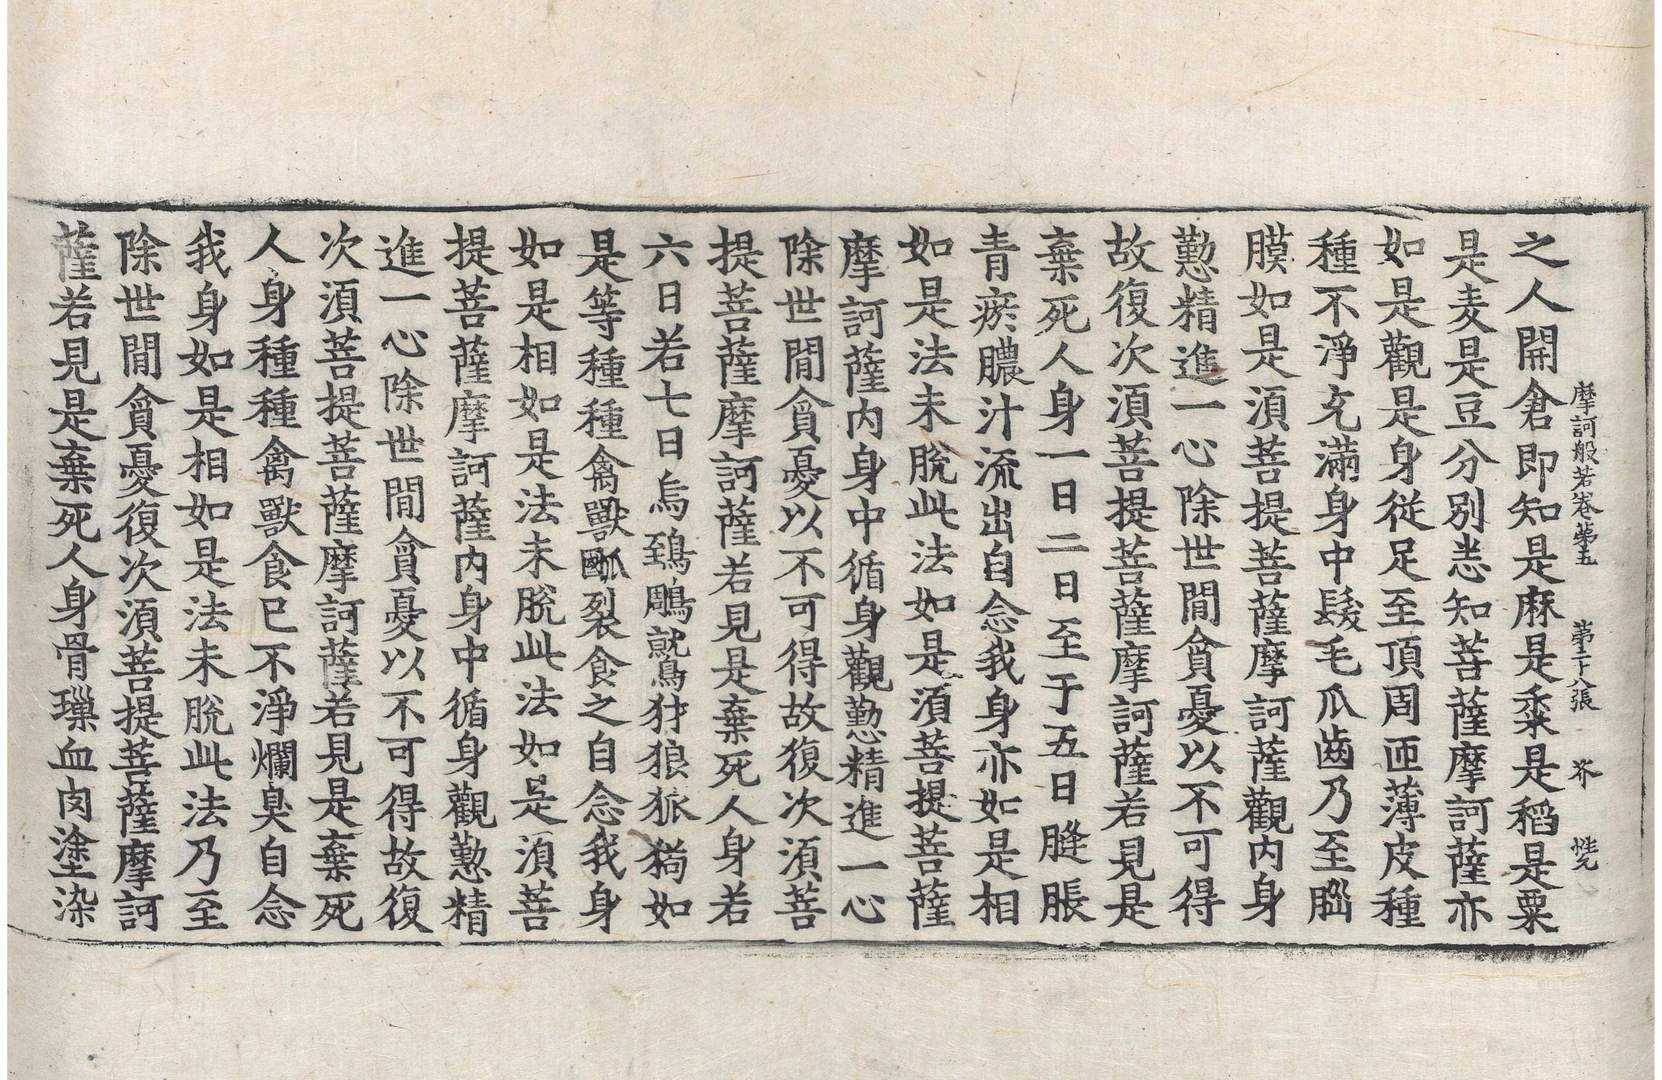 摩訶般若卷苐五 苐二十八張 芥
之人開倉即知是麻是黍是稻是粟
是麦是豆分別悉知菩薩摩訶薩亦
如是觀是身従足至頂周匝薄皮種
種不淨充滿身中髮毛爪齒乃至腦
膜如是湏菩提菩薩摩訶薩觀内身
懃精進一心除世閒貪憂以不可得
故復次湏菩提菩薩摩訶薩若見是
棄死人身一日二日至于五日膖脹
青瘀膿汁流出自念我身亦如是相
如是法未脫此法如是湏菩提菩薩
摩訶薩内身中循身觀懃精進一心
除世閒貪憂以不可得故復次湏菩
提菩薩摩訶薩若見是棄死人身若
六日若七日烏鵄鵰鷲犲狼狐猗如
是等種種禽獸㽃裂食之自念我身
如是相如是法未脫此法如是湏菩
提菩薩摩訶薩内身中循身觀懃精
進一心除世閒貪憂以不可得故復
次湏菩提菩薩摩訶薩若見是棄死
人身種種禽獸食已不淨爛臭自念
我身如是相如是法未脫此法乃至
除世閒貪憂復次湏菩提菩薩摩訶
薩若見是棄死人身骨璅血肉塗染